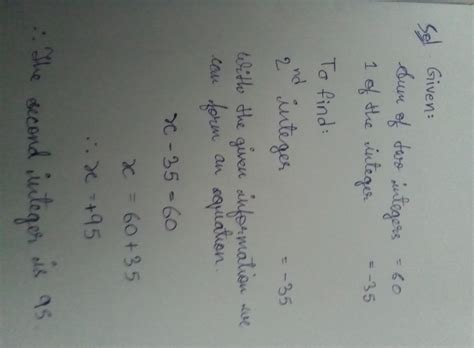 Sol. Given:
Sum of two integers = 60
1 of the integer = -35
To find:
2nd integer = -35
With the given information we
can form an equation.
x - 35 = 60
x = 60 + 35
∴ x = +95
∴ The second integer is 95.